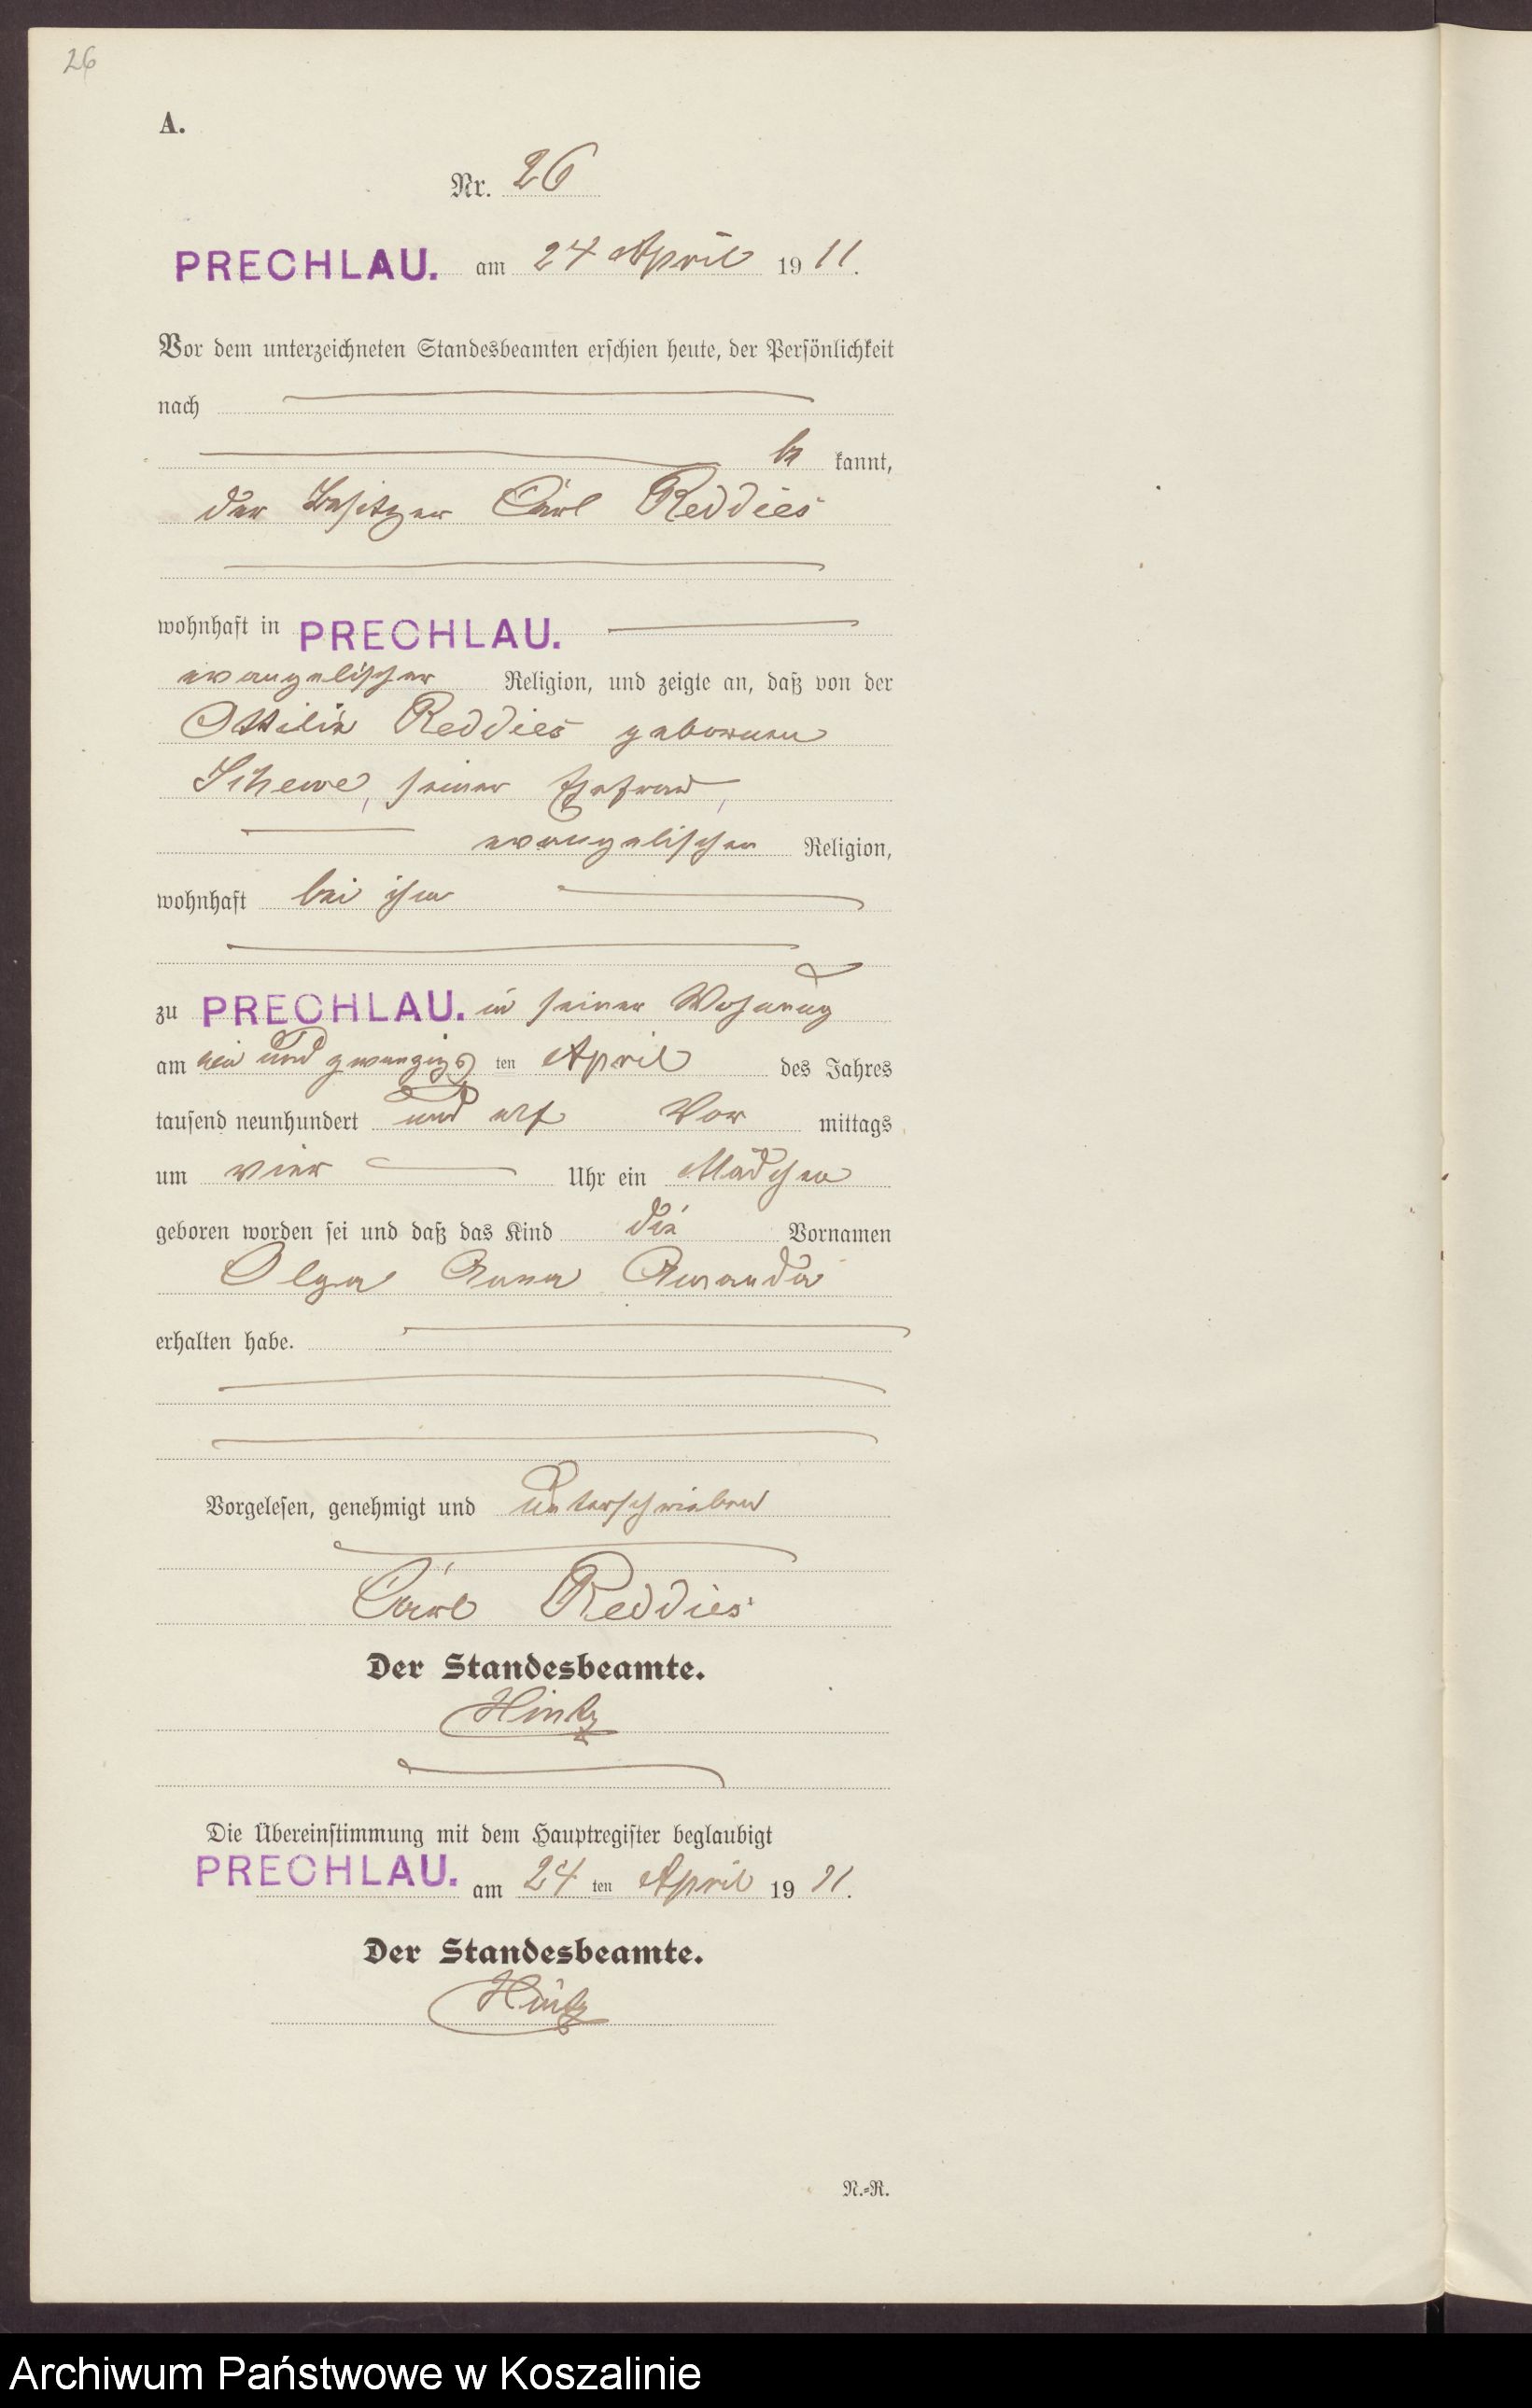 26
A.
Nr. 26
PRECHLAU. am 24 April 1911.
Vor dem unterzeichneten Standesbeamten erschien heute, der Persönlichkeit
nach
be kannt,
der Besitzer Carl Reddies
wohnhaft in PRECHLAU.
evangelischer Religion, und zeigte an, daß von der
Ottilie Reddies gebornen
Schewe, seiner Ehefrau,
evangelischer Religion,
wohnhaft bei ihm
zu PRECHLAU. in seiner Wohnung
am ein und zwanzigs ten April des Jahres
tausend neunhundert und elf Vor mittags
um vier Uhr ein Mädchen
geboren worden sei und daß das Kind die Vornamen
Olga Anna Amanda
erhalten habe.
Vorgelesen, genehmigt und unterschrieben
Carl Reddies
Der Standesbeamte.
Hintz
Die Übereinstimmung mit dem Hauptregister beglaubigt
PRECHLAU. am 24 ten April 1911.
Der Standesbeamte.
Hintz
N.-R.
Archiwum Państwowe w Koszalinie